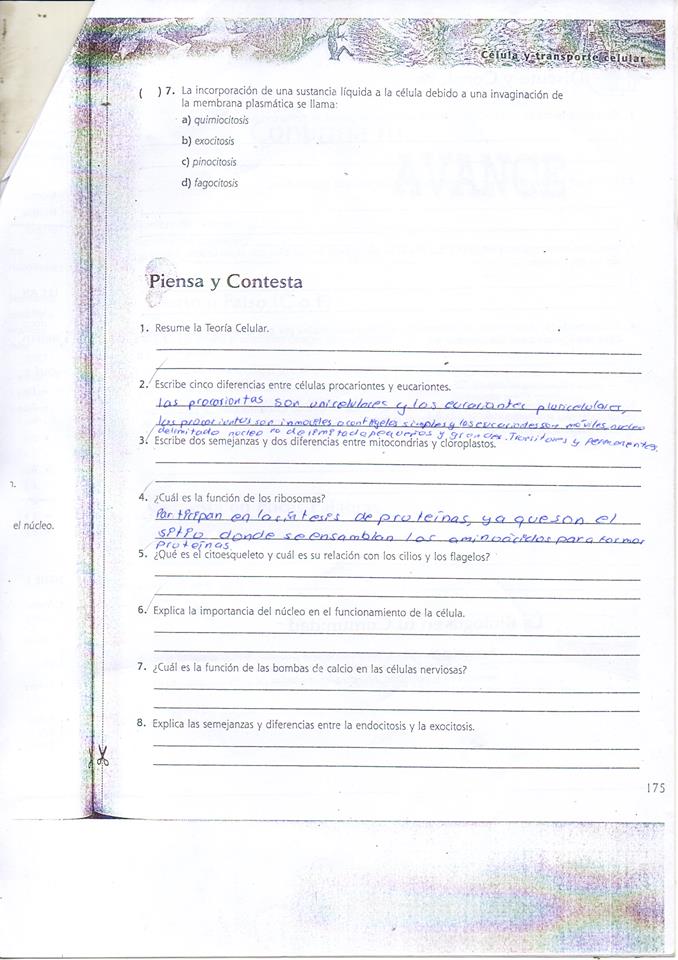 Célula y transporte celular
( ) 7. La incorporación de una sustancia líquida a la célula debido a una invaginación de
la membrana plasmática se llama:
a) quimiocitosis
b) exocitosis
c) pinocitosis
d) fagocitosis
Piensa y Contesta
1. Resume la Teoría Celular.
2. Escribe cinco diferencias entre células procariontes y eucariontes.
Las procariontas son unicelulares y los eucariontes pluricelulares,
las procariontas son inmoviles o con flagelos simples y los eucariontes son móviles, nucleo
delimitado nucleo no delimitado pequeños y grandes. Transitores y permanentes.
3. Escribe dos semejanzas y dos diferencias entre mitocondrias y cloroplastos.
1.
4. ¿Cuál es la función de los ribosomas?
Participan en la síntesis de proteínas, ya que son el
el núcleo.
sitio donde se ensamblan los aminoácidos para formar
proteínas.
5. ¿Qué es el citoesqueleto y cuál es su relación con los cilios y los flagelos?
6. Explica la importancia del núcleo en el funcionamiento de la célula.
7. ¿Cuál es la función de las bombas de calcio en las células nerviosas?
8. Explica las semejanzas y diferencias entre la endocitosis y la exocitosis.
175